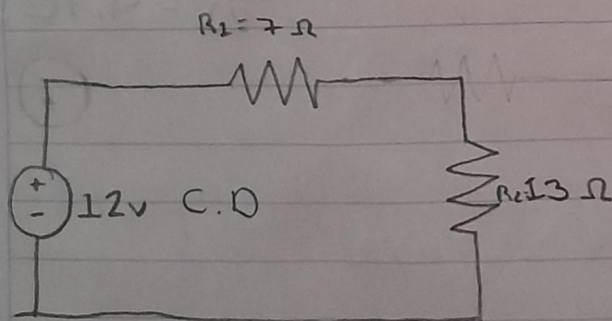 R1=7 Ω
+
-
12v C.D
R2 13 Ω